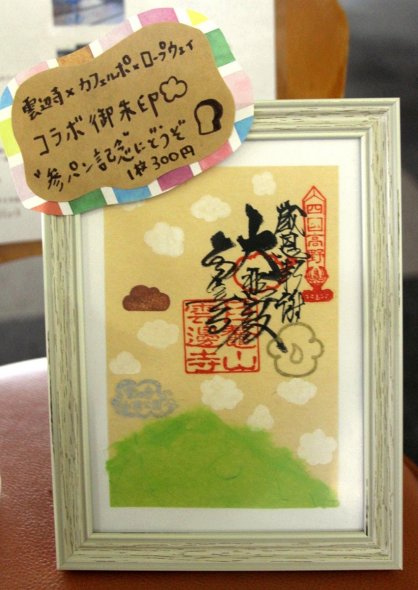 雲辺寺×カフェルポ×ロープウェイ
コラボ御朱印
"参パン記念"にどうぞ
1枚300円
四国高野
歳旦影前
大
山
雲邊寺